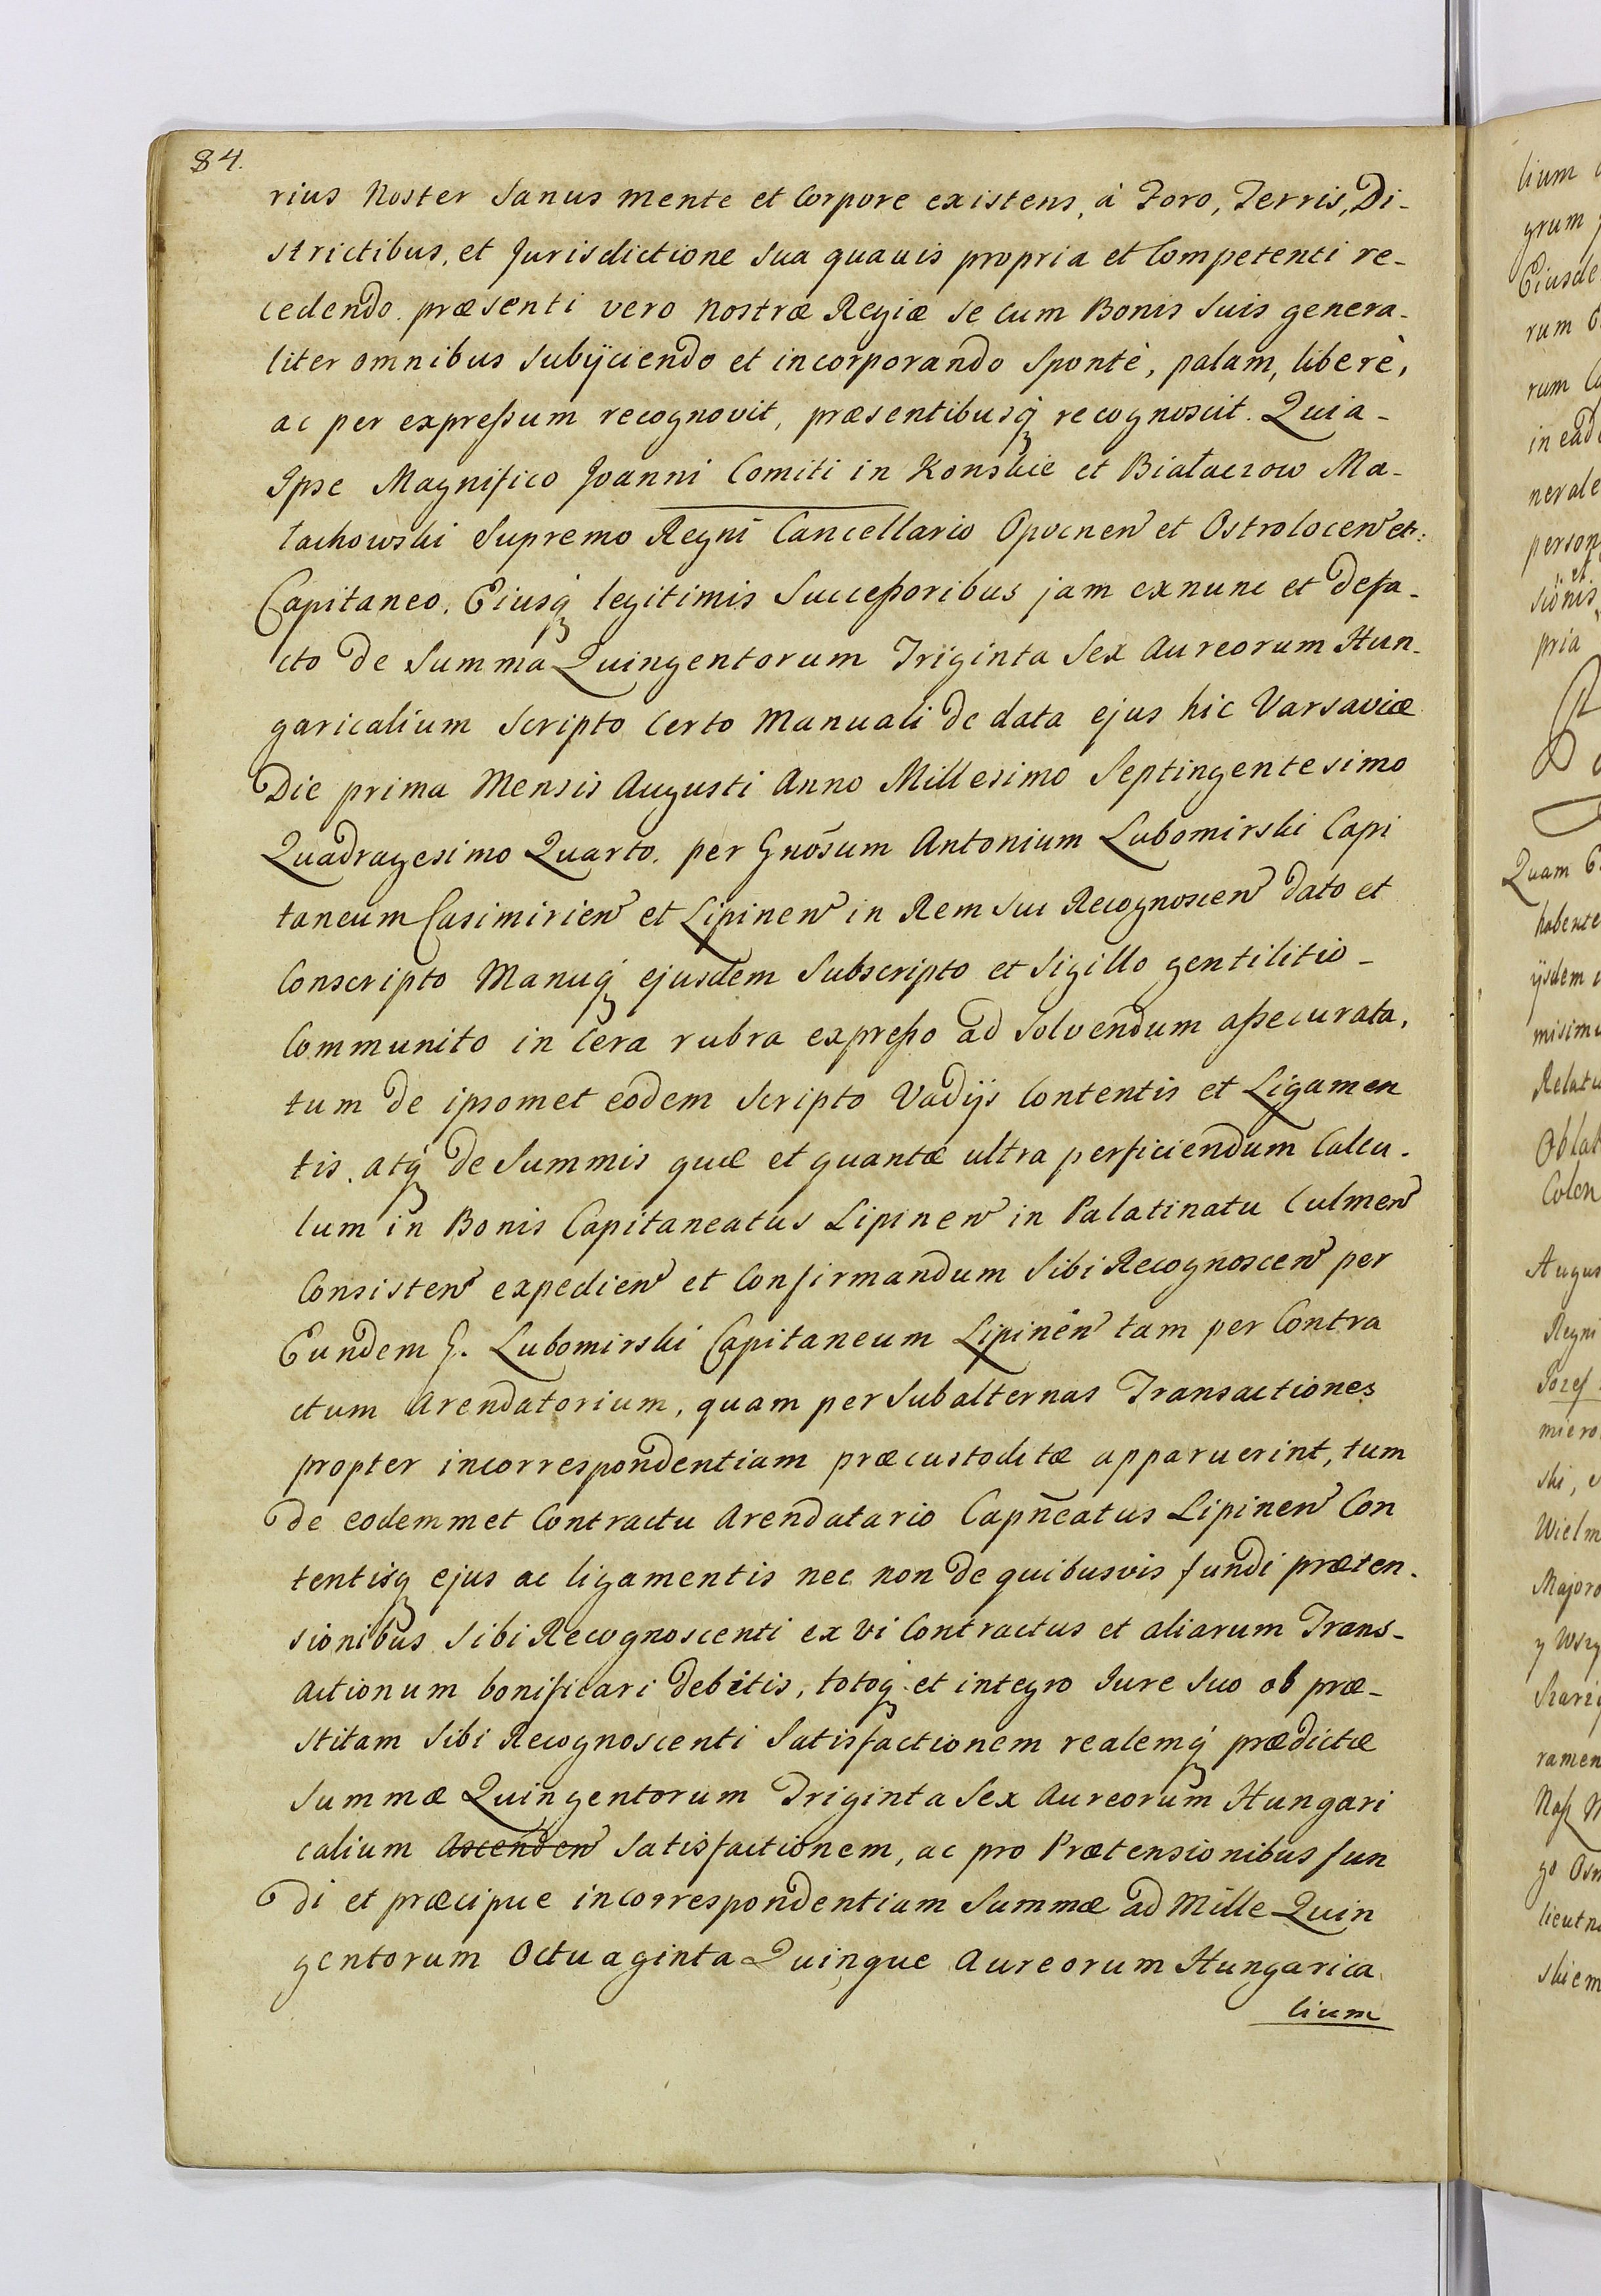 84.
rius Noster Sanus mente et Corpore existens, à Foro, Terris, Di-
strictibus, et Jurisdictione sua quavis propria et Competenti re-
cedendo. præsenti vero Nostræ Regiæ se cum Bonis suis genera-
liter omnibus subÿciendo et incorporando Spontè, palam, liberè,
ac per expreßum recognovit, præsentibusq̃ recognoscit. Quia-
Ipse Magnifico Joanni Comiti in Konskie et Białaczow Ma-
łachowski Supremo Regni Cancellario Opocnen̄ et Ostrolocen̄ etc:
Capitaneo, Eiusq̃ legitimis Succeßoribus jam exnunc et defa-
cto de Summa Quingentorum Triginta Sex Aureorum Hun-
garicalium Scripto Certo Manuali de data ejus hic Varsaviæ
Die prima Mensis Augusti Anno Millesimo Septingentesimo
Quadragesimo Quarto. per Gnōsum Antonium Lubomirski Capi
taneum Casimirien̄ et Lipinen̄ in Rem sui Recognoscen̄ dato et
Conscripto Manuq̃ ejusdem Subscripto et Sigillo gentilitio-
Communito in Cera rubra expreßo ad Solvendum aßecurata,
tum de ipsomet eodem Scripto Vadÿs Contentis et Ligamen
tis, atq̃ de Summis quæ et quantæ ultra perficiendum Calcu-
lum in Bonis Capitaneatus Lipinen̄ in Palatinatu Culmen̄
Consisten̄ expedien̄ et Confirmandum Sibi Recognoscen̄ per
Eundem G. Lubomirski Capitaneum Lipinen̄ tam per Contra
ctum Arendatorium, quam per Subalternas Transactiones
propter incorrespondentiam præcustoditæ apparuerint, tum
de eodemmet Contractu Arendatario Capn̄eatus Lipinen̄ Con
tentisq̃ ejus ac ligamentis nec non de quibusvis fundi præten-
sionibus Sibi Recognoscenti ex vi Contractus et aliarum Trans-
actionum bonificari debitis, totoq̃ et integro Jure Suo ob præ-
stitam Sibi Recognoscenti Satisfactionem realemq̃ prædictæ
Summæ Quingentorum Triginta Sex Aureorum Hungari
calium Ascenden̄ Satisfactionem, ac pro Prætensionibus fun
di et præcipue incorrespondentiam Summæ ad Mille Quin
gentorum Octuaginta Quinque Aureorum Hungarica
lium